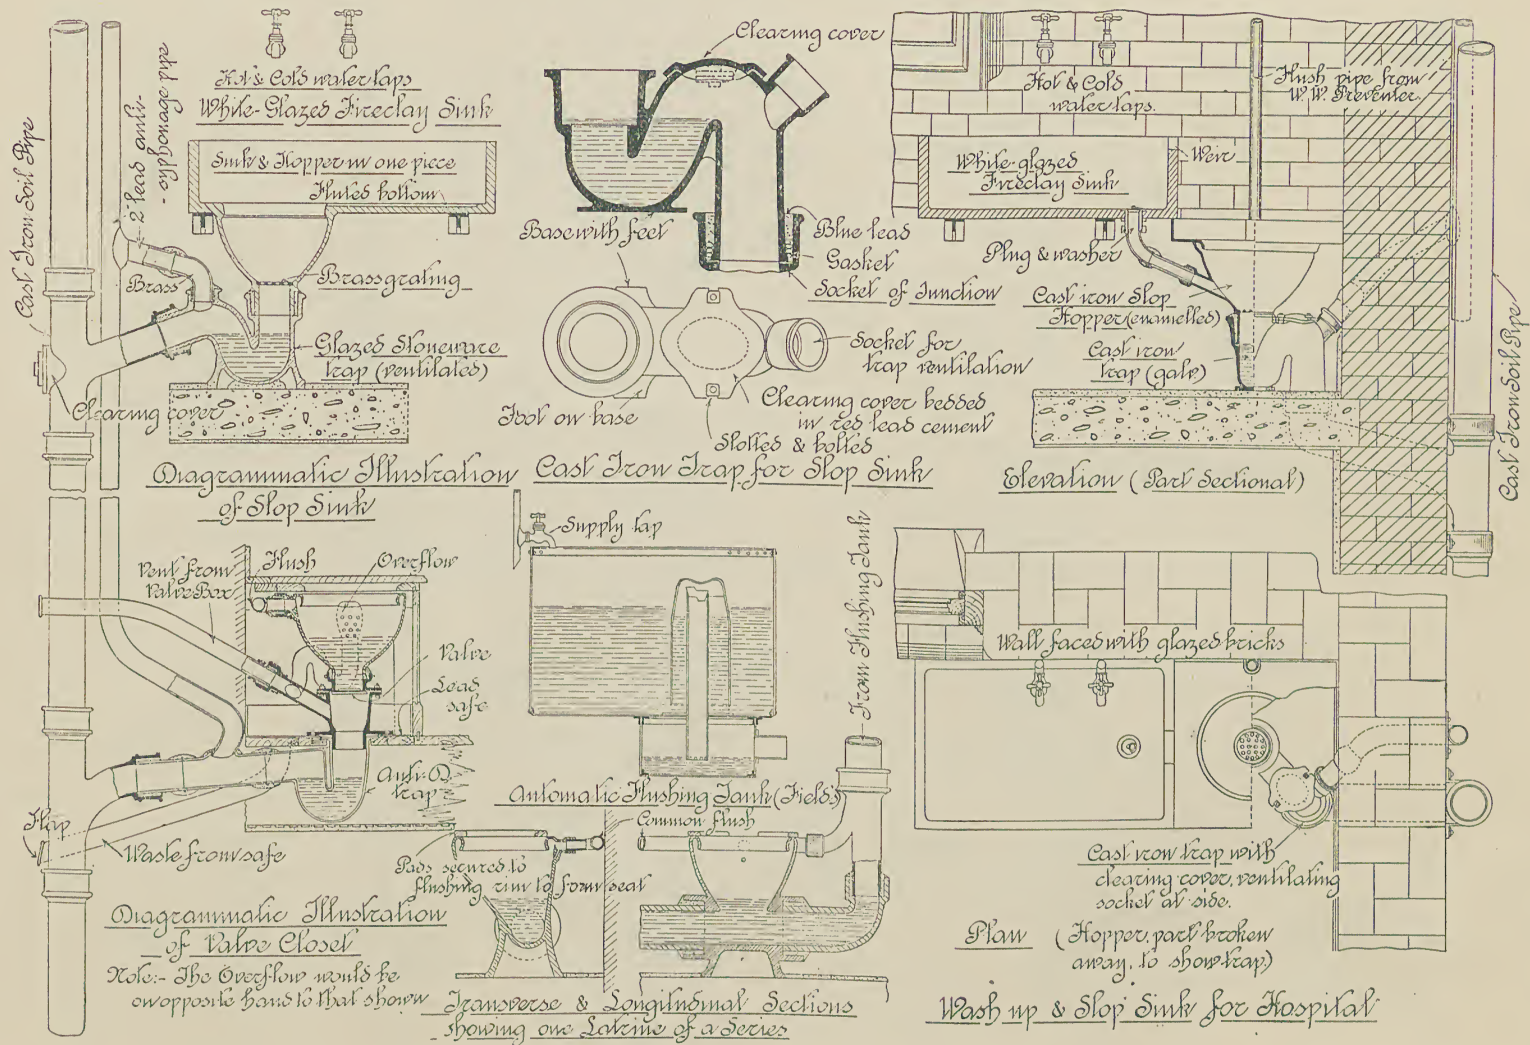 Cast Iron Soil Pipe
2" lead anti-
-syphonage pipe
Hot & Cold water taps
White-Glazed Fireclay Sink
Sink & Hopper in one piece
Fluted bottom
Brass
Brass grating
Glazed Stoneware
trap (ventilated)
Clearing cover
Diagrammatic Illustration
of Slop Sink
Clearing cover
Base with feet
Blue lead
Gasket
Socket of Junction
Socket for
trap ventilation
Foot on base
Clearing cover bedded
in red lead cement
Slotted & bolted
Cast Iron Trap for Slop Sink
Hot & Cold
water taps.
Flush pipe from
W. W. Preventer.
White-glazed
Fireclay Sink
Weir
Plug & washer
Cast iron Slop
Hopper (enamelled)
Cast iron
trap (galv)
Cast Iron Soil Pipe
Elevation (Part Sectional)
Vent from
Valve Box
Flush
Overflow
Valve
Lead
safe
Anti-D
trap
Flap
Waste from safe
Diagrammatic Illustration
of Valve Closet
Note:- The Overflow would be
on opposite hand to that shown
Supply tap
Automatic Flushing Tank (Field's)
From Flushing Tank
Common flush
Pads secured to
flushing rim to form seat
Transverse & Longitudinal Sections
showing one Latrine of a Series
Wall faced with glazed bricks
Cast iron trap with
clearing cover, ventilating
socket at side.
Plan (Hopper, part broken
away, to show trap)
Wash up & Slop Sink for Hospital